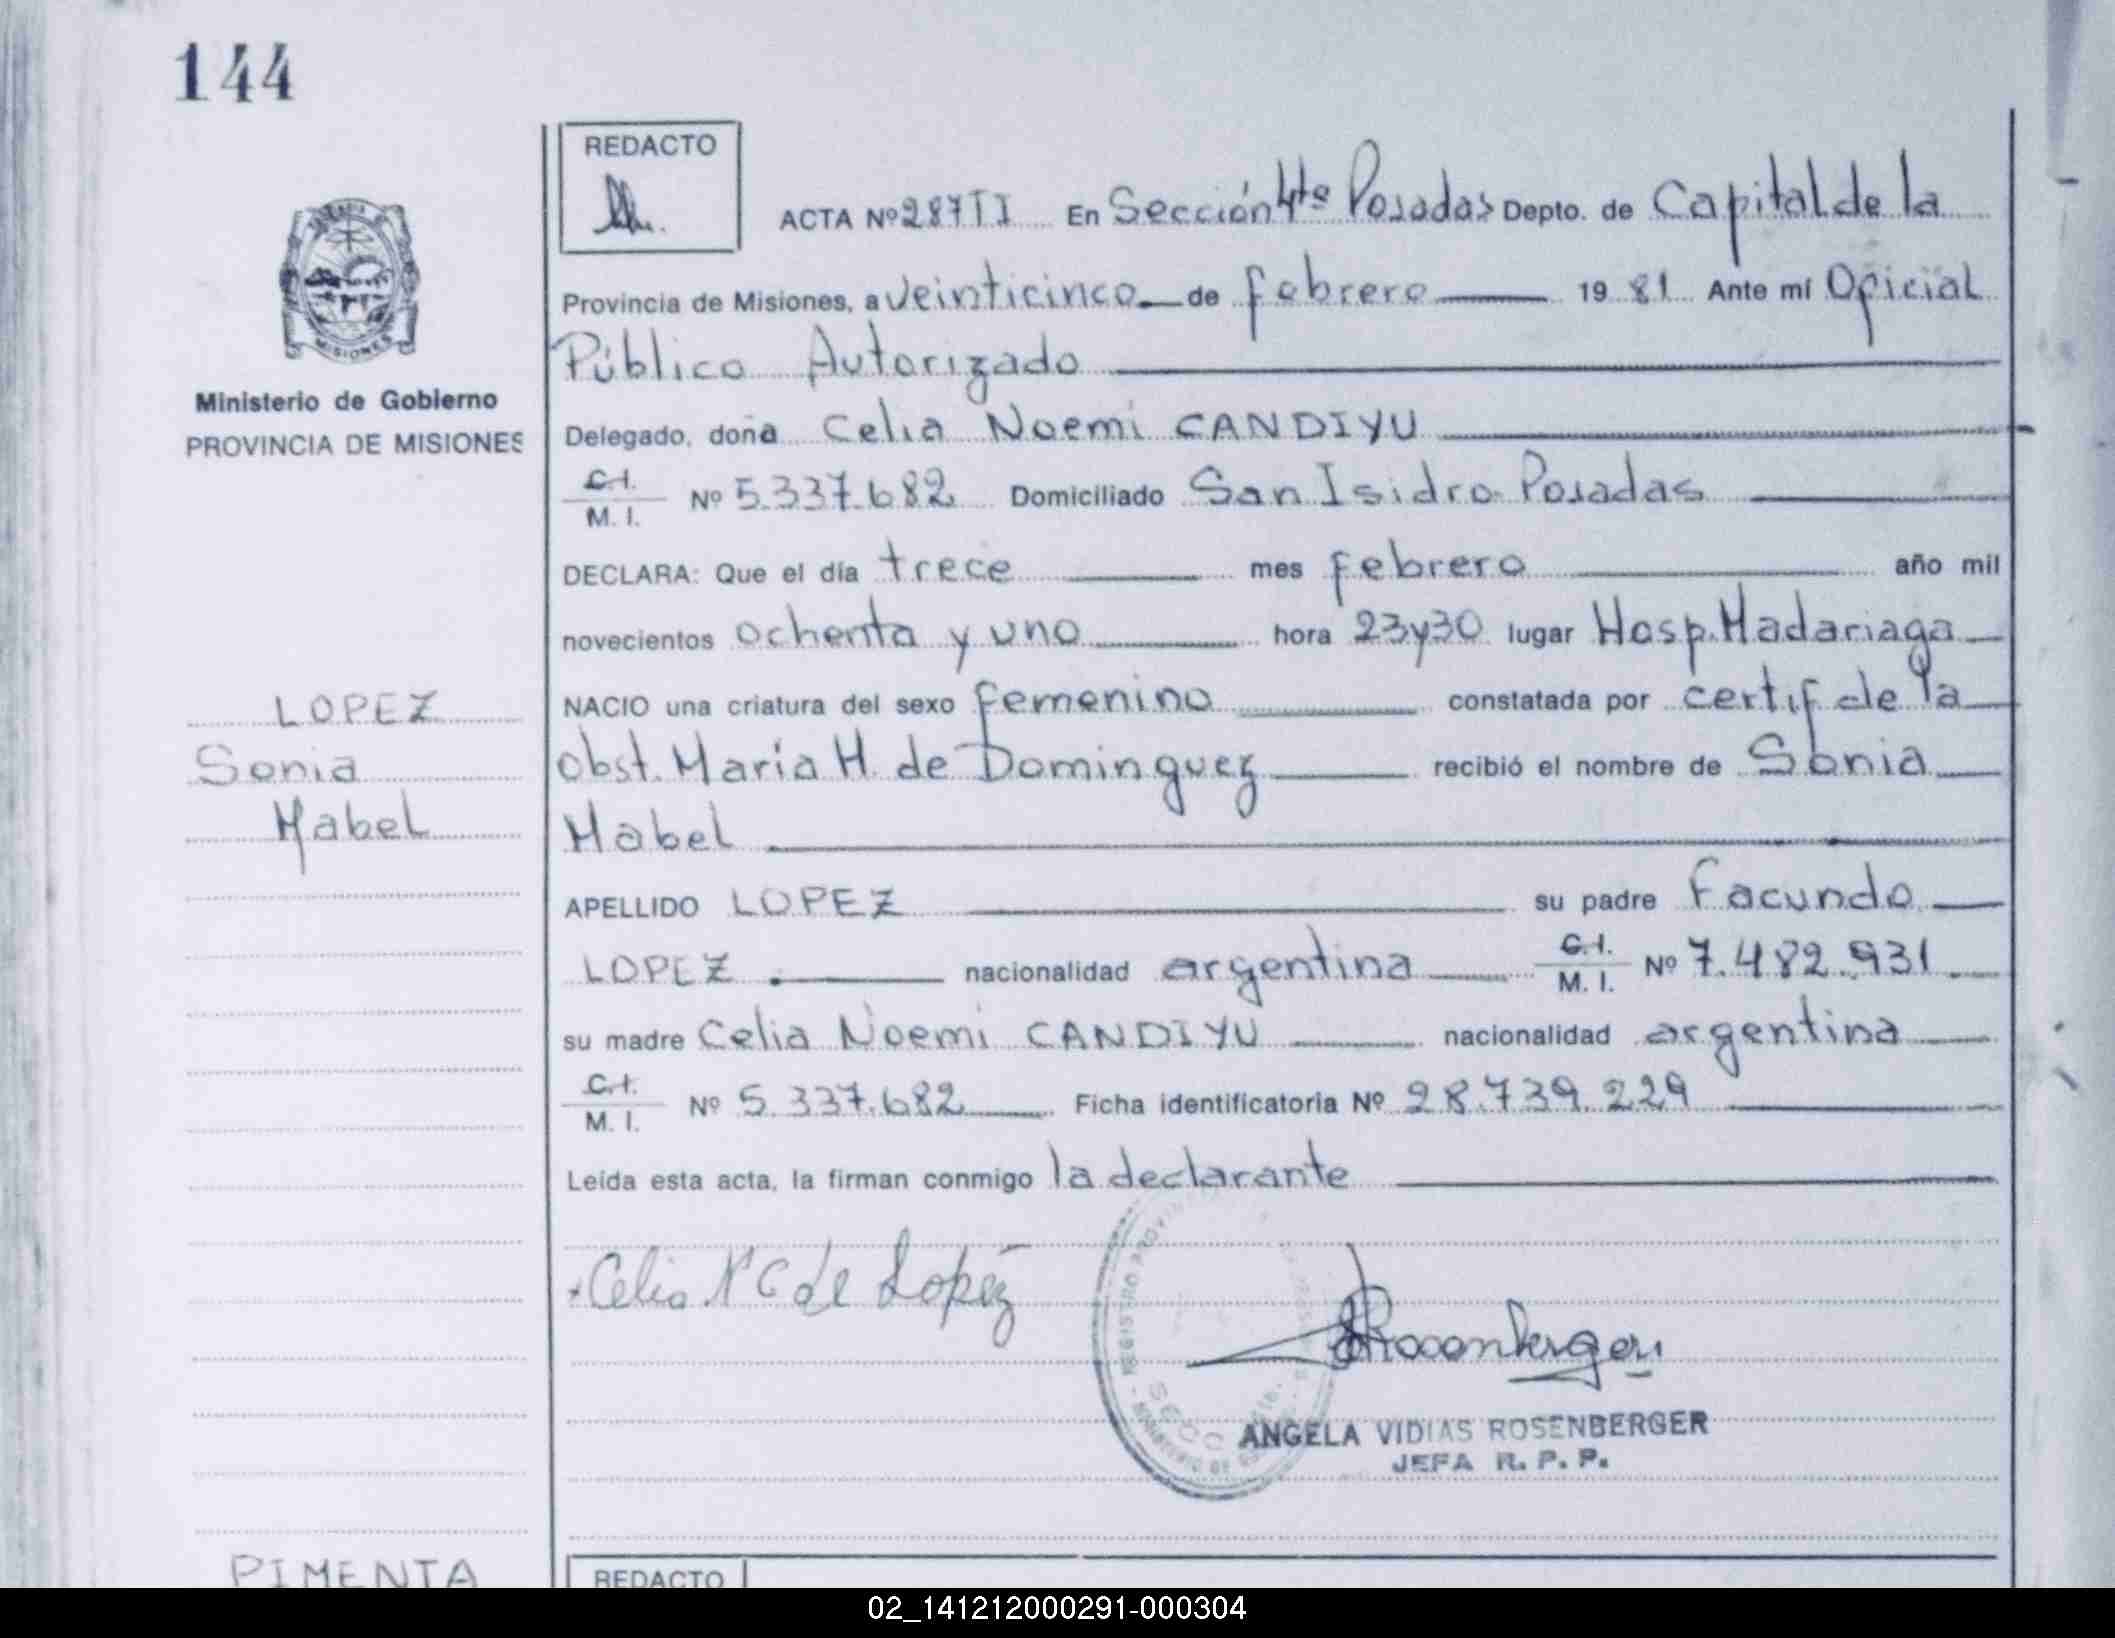 144
REDACTO
ACTA Nº 287 TI En Sección 4ta Posadas Depto. de Capital de la
Provincia de Misiones, a veinticinco de febrero 19 81 Ante mí Oficial
Público Autorizado
MISIONES
Ministerio de Gobierno
PROVINCIA DE MISIONES
Delegado, doña Celia Noemi CANDIYU
C.I.
M. I. Nº 5.337.682 Domiciliado San Isidro Posadas
DECLARA: Que el día trece mes febrero año mil
novecientos ochenta y uno hora 23y30 lugar Hosp. Madariaga
LOPEZ
Sonia
Mabel
NACIO una criatura del sexo femenino constatada por certif de la
obst. María H. de Dominguez recibió el nombre de Sonia
Mabel
APELLIDO LOPEZ su padre Facundo
LOPEZ nacionalidad argentina C.I. M. I. Nº 7.482.931
su madre Celia Noemi CANDIYU nacionalidad argentina
C.I.
M. I. Nº 5.337.682 Ficha identificatoria Nº 28.739.229
Leída esta acta, la firman conmigo la declarante
Celia N C de Lopez
Rosenberger
REGISTRO
ANGELA VIDIAS ROSENBERGER
JEFA R. P. P.
PIMENTA
REDACTO
02_141212000291-000304